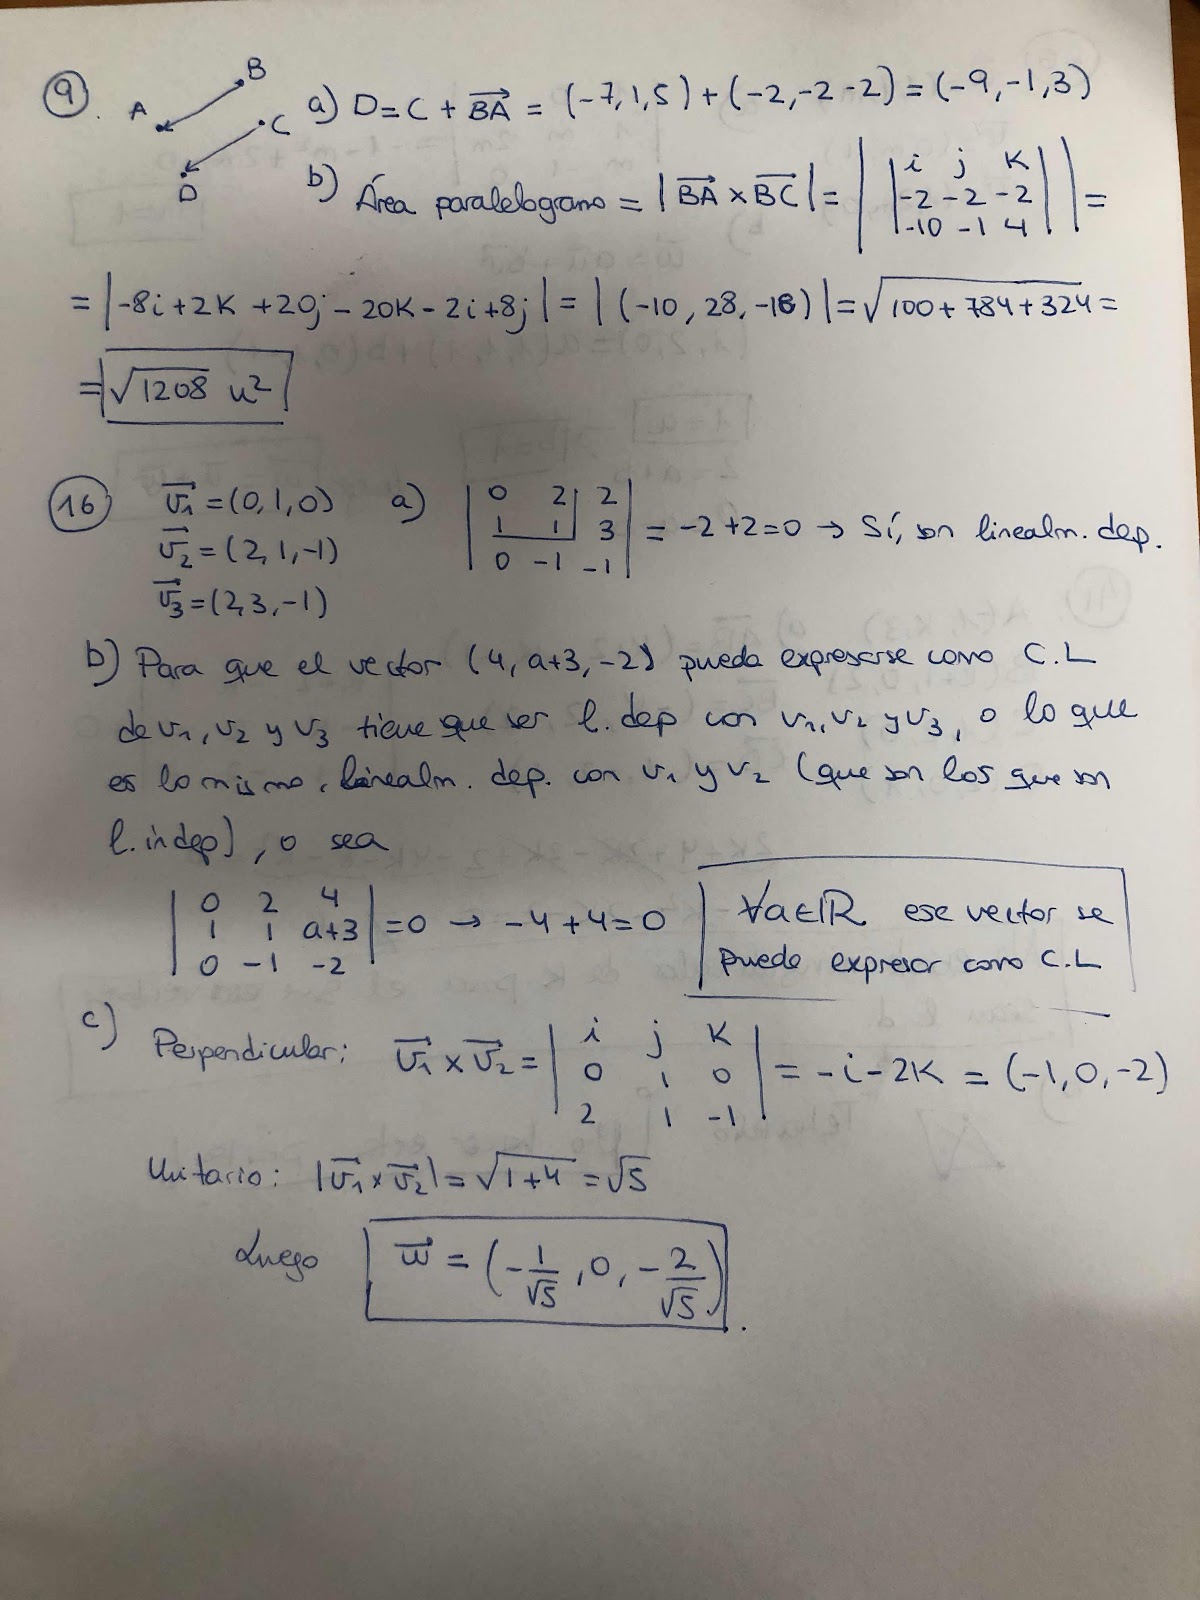 9. A B C D a) D = C + BA = (-7,1,5) + (-2,-2-2) = (-9,-1,3)
b) Área paralelogramo = |BA × BC| = | |i j k| | =
-2 -2 -2
-10 -1 4
= |-8i+2k+20j-20k-2i+8j| = |(-10, 28, -18)| = √100+784+324 =
= √1208 u²
16 v1 = (0,1,0) a) | 0 2 2 |
v2 = (2,1,-1) | 1 1 3 | = -2+2=0 → Sí, son linealm. dep.
v3 = (2,3,-1) | 0 -1 -1 |
b) Para que el vector (4, a+3, -2) pueda expresarse como C.L
de v1, v2 y v3 tiene que ser l. dep con v1, v2 y v3, o lo que
es lo mismo, linealm. dep. con v1 y v2 (que son los que son
l. indep), o sea
| 0 2 4 |
| 1 1 a+3 | = 0 → -4+4=0 ∀a∈ℝ ese vector se
| 0 -1 -2 | puede expresar como C.L
c) Perpendicular: v1 × v2 = | i j k |
| 0 1 0 | = -i-2k = (-1,0,-2)
| 2 1 -1 |
Unitario: |v1 × v2| = √1+4 = √5
Luego w = (-1/√5, 0, -2/√5).